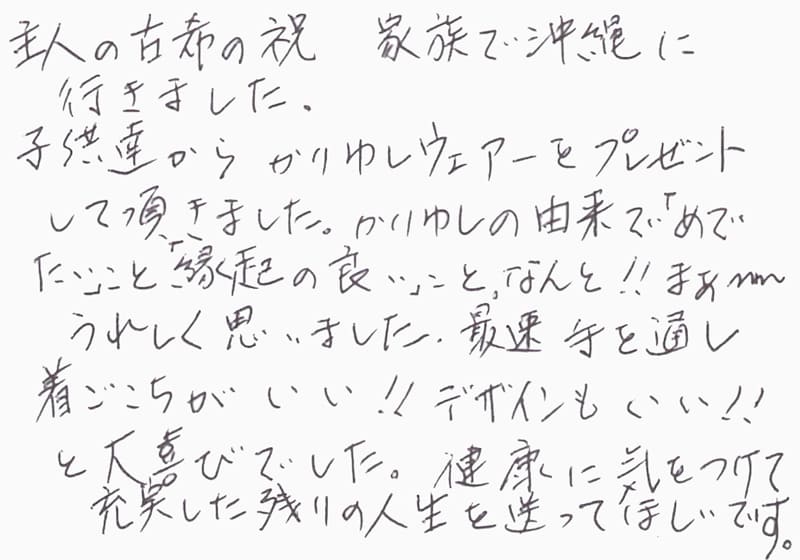 主人の古希の祝　家族で沖縄に
行きました。
子供達から かりゆしウェアーをプレゼント
して頂きました。かりゆしの由来で「めで
たい」こと「縁起の良い」こと、なんと!! まぁ〰
うれしく思いました。最速 手を通し
着ごこちが いい!! デザインも いい!!
と大喜びでした。健康に気をつけて
充実した残りの人生を送ってほしいです。